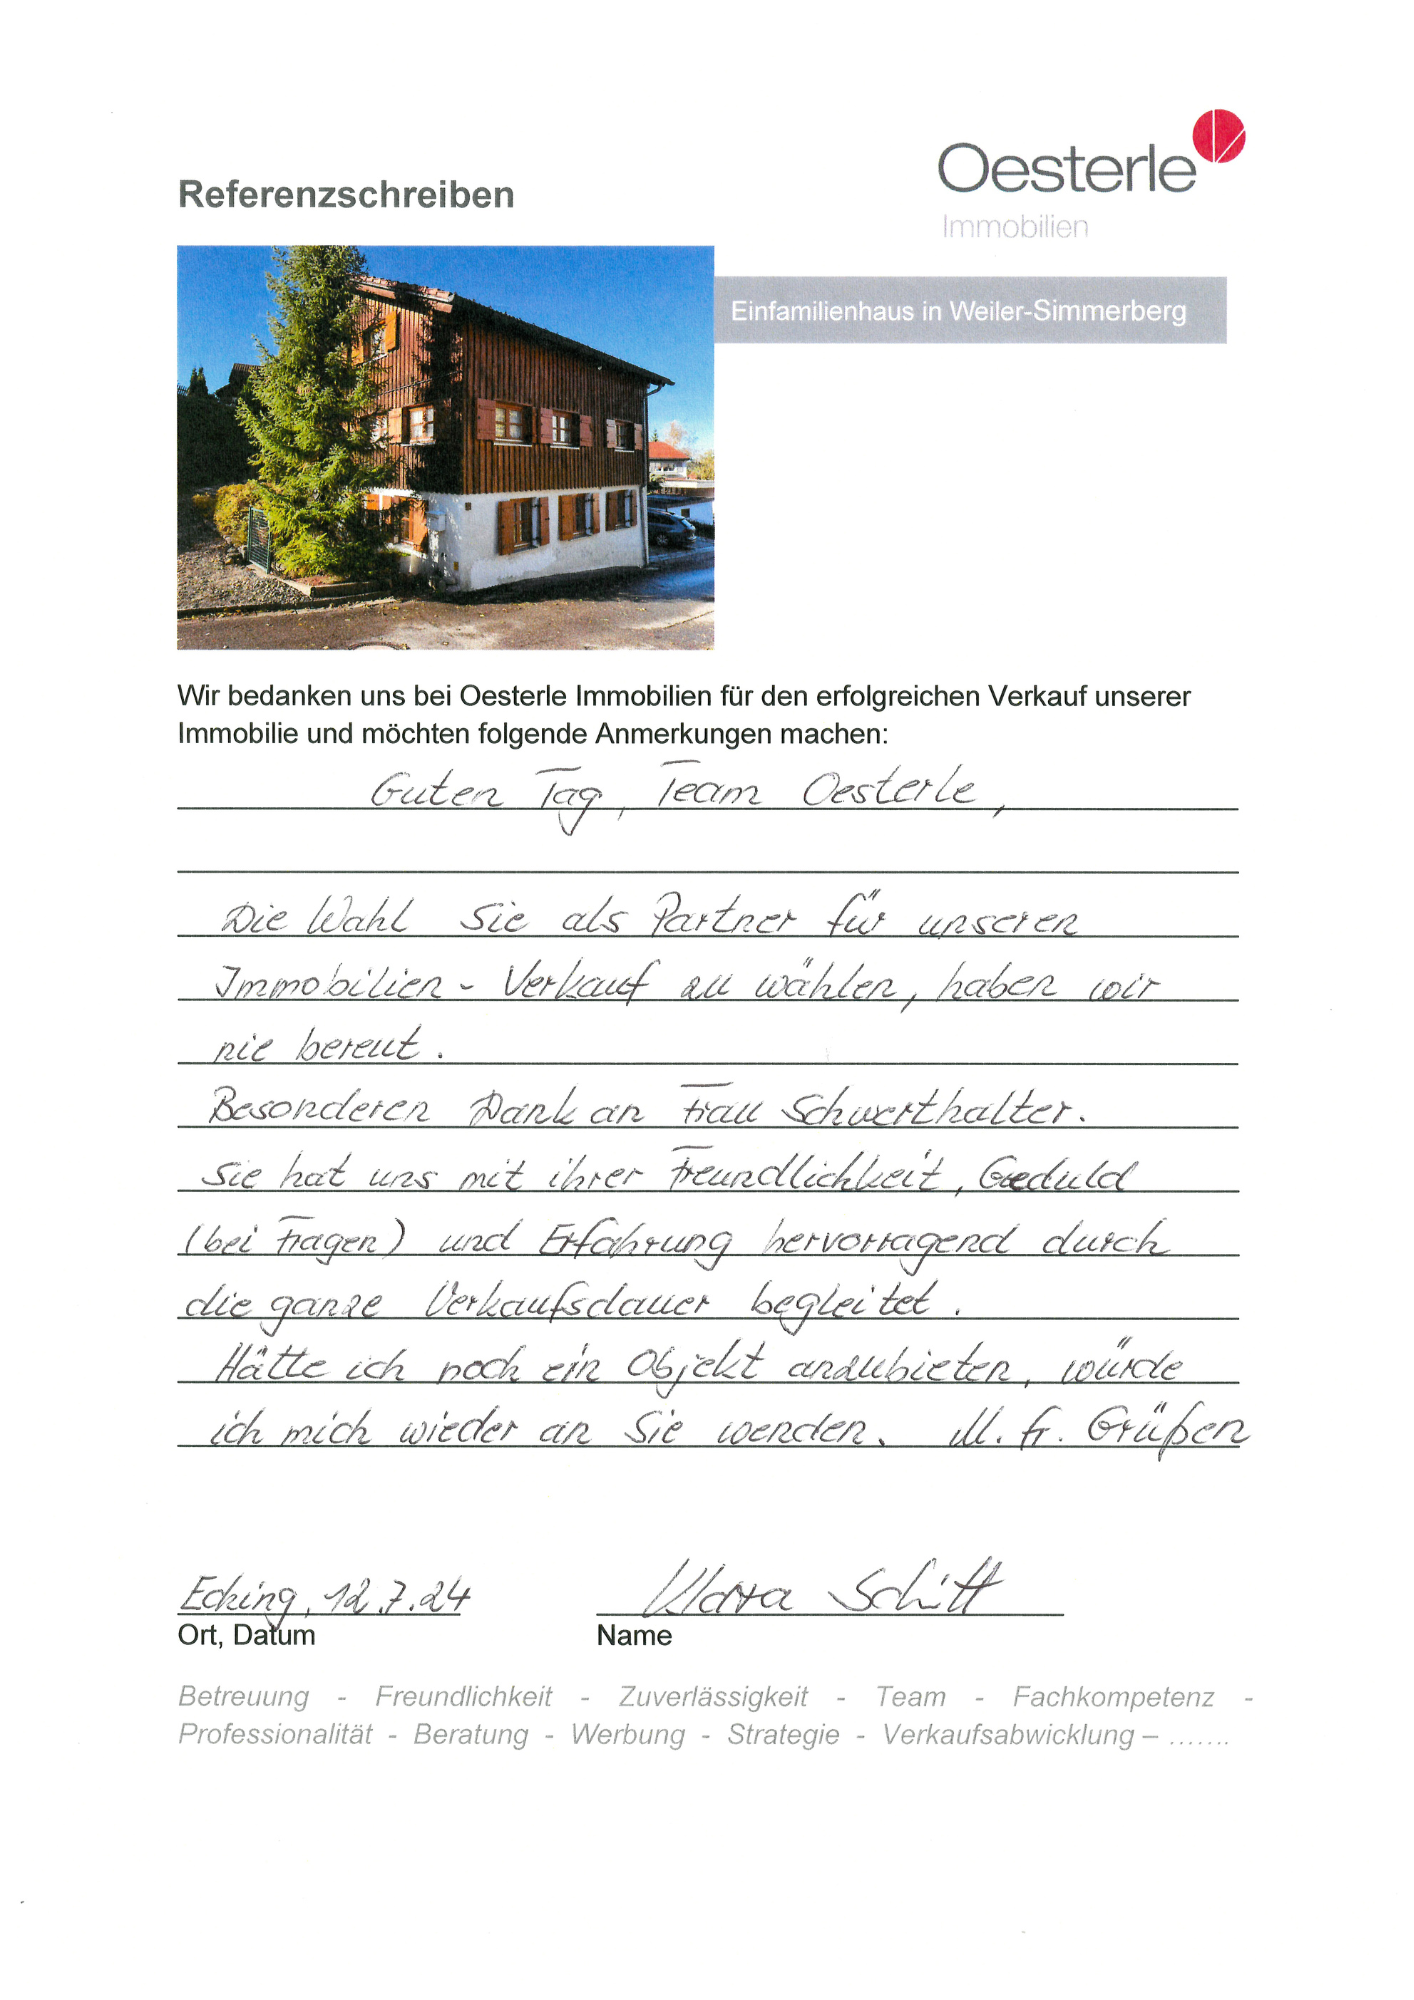 Oesterle
Immobilien
Referenzschreiben
Einfamilienhaus in Weiler-Simmerberg
Wir bedanken uns bei Oesterle Immobilien für den erfolgreichen Verkauf unserer
Immobilie und möchten folgende Anmerkungen machen:
Guten Tag, Team Oesterle,
Die Wahl Sie als Partner für unseren
Immobilien - Verkauf zu wählen, haben wir
nie bereut.
Besonderen Dank an Frau Schwerthalter.
Sie hat uns mit ihrer Freundlichkeit, Geduld
(bei Fragen) und Erfahrung hervorragend durch
die ganze Verkaufsdauer begleitet.
Hätte ich noch ein Objekt anzubieten, würde
ich mich wieder an Sie wenden. M. fr. Grüßen
Eching, 12.7.24
Schitt
Ort, Datum
Name
Betreuung - Freundlichkeit - Zuverlässigkeit - Team - Fachkompetenz -
Professionalität - Beratung - Werbung - Strategie - Verkaufsabwicklung – .......